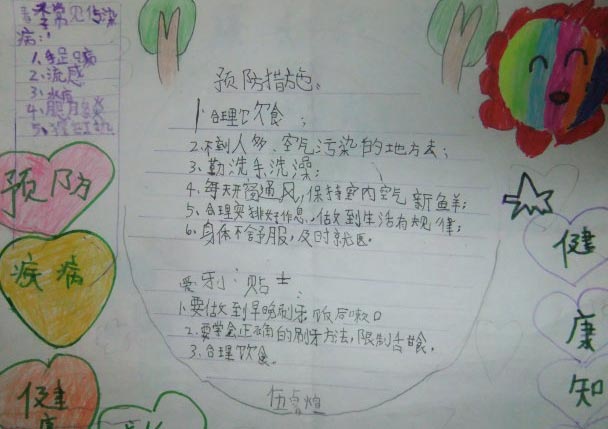 季常见传染
病:
1、手足口病
2、流感
3、水痘
4、腮腺炎
5、
预防
疾病
健康
预防措施。
1、合理饮食；
2、不到人多、空气污染的地方去；
3、勤洗手洗澡；
4、每天开窗通风，保持室内空气新鲜；
5、合理安排好作息，做到生活有规律；
6、身体不舒服，及时就医。
爱牙小贴士：
1、要做到早晚刷牙饭后嗽口
2、要学会正确的刷牙方法，限制舌甜食。
3、合理饮食。
健
康
知